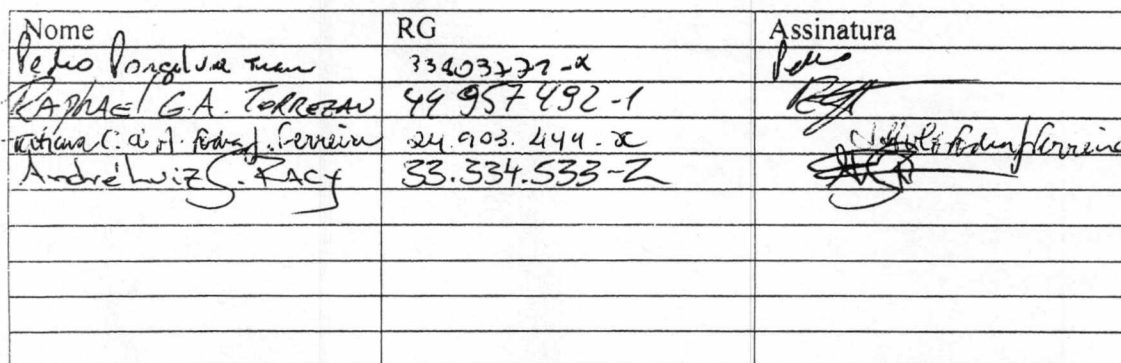 Nome RG Assinatura
Pedro 33403272-x Pedro
RAPHAEL G.A. TORREZAN 44 957 492-1
Tatiana C. Ferreira 24.903.444-x Ferreira
André Luiz G. RACY 33.334.533-2